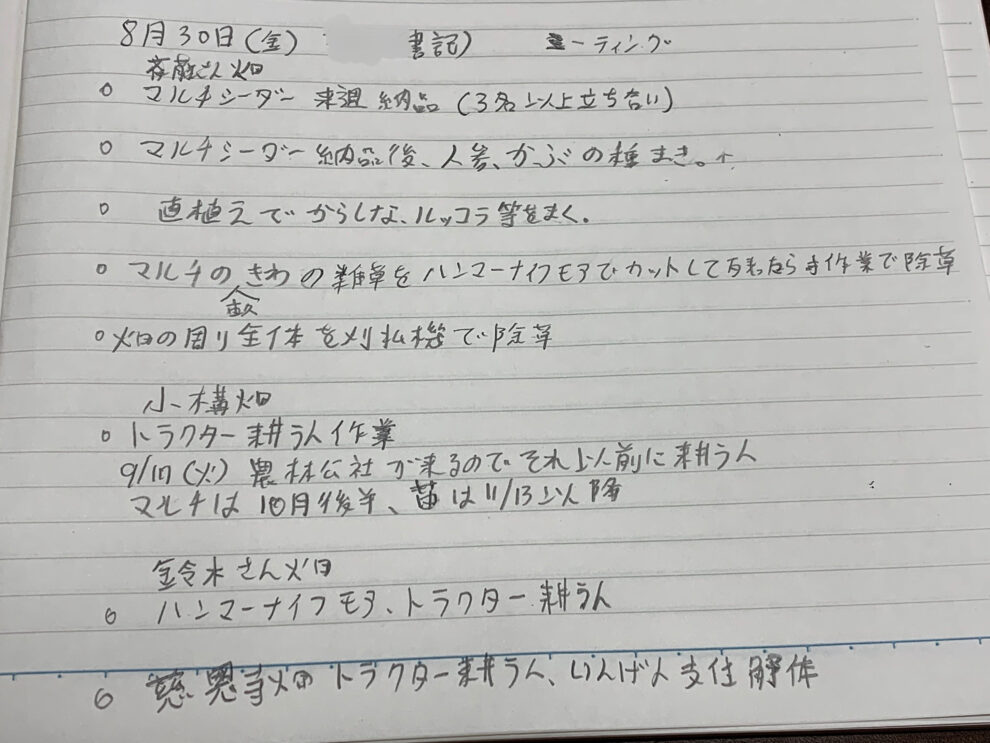 8月30日(金) 書記) ミーティング
斉藤さん畑
○ マルチシーダー来週納品(3名以上立ち合い)
○ マルチシーダー納品後、人参、かぶの種まき。↑
○ 直植えでからしな、ルッコラ等をまく。
○ マルチのきわの雑草をハンマーナイフモアでカットして方手作業で除草
畝
○ 畑の周り全体を刈払機で除草
小構畑
○ トラクター耕うん作業
9/17(火)農林公社が来るのでそれ以前に耕うん
マルチは10月後半、苗は11/13以降
鈴木さん畑
○ ハンマーナイフモア、トラクター耕うん
○ 慈恩寺畑トラクター耕うん、いんげん支住解体